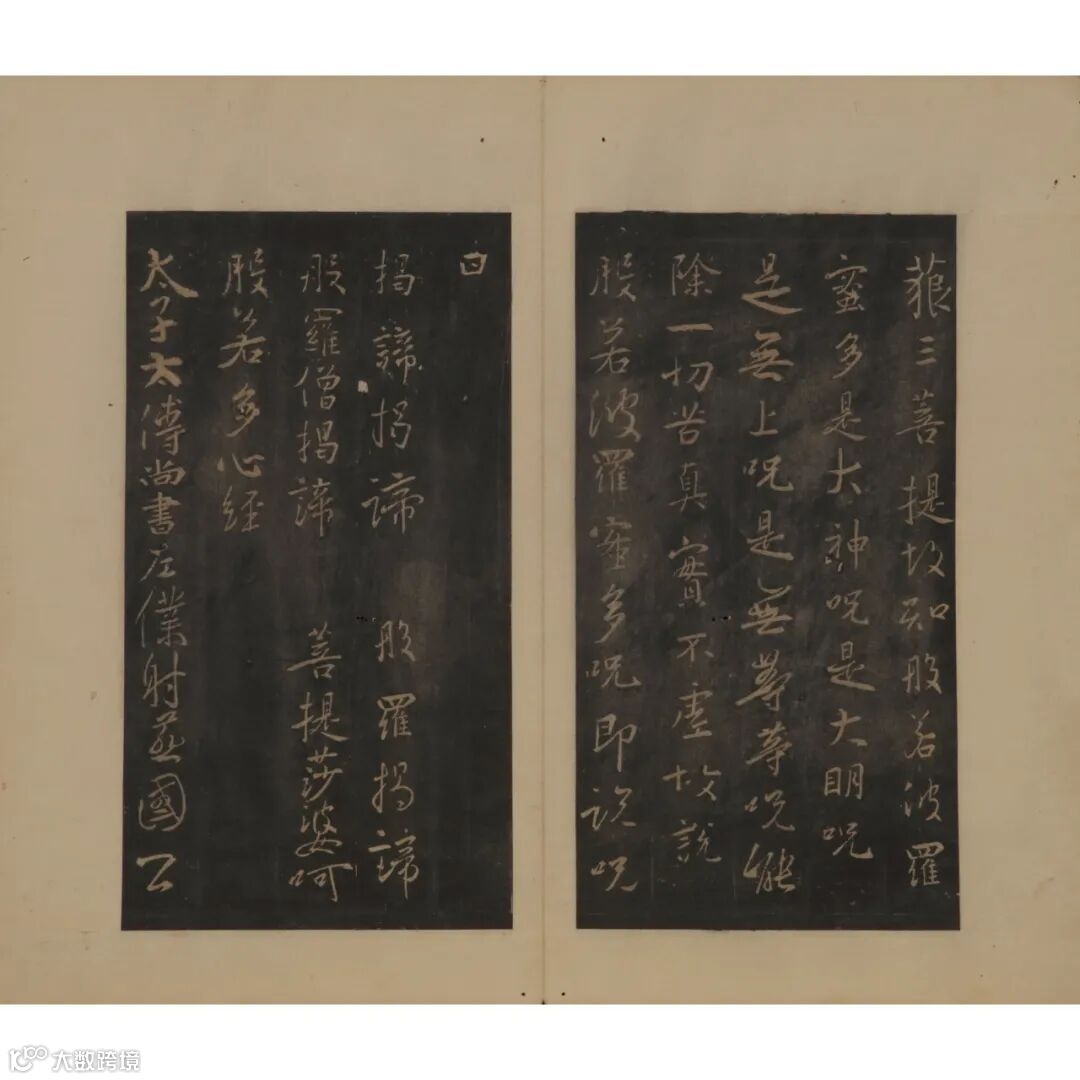 藐三菩提故知般若波羅
蜜多是大神呪是大明呪
是無上呪是無等等呪能
除一切苦真實不虛故說
般若波羅蜜多呪即說呪
曰
揭諦揭諦 般羅揭諦
般羅僧揭諦 菩提莎婆呵
般若多心經
太子太傅尚書左僕射燕國公
大数跨境